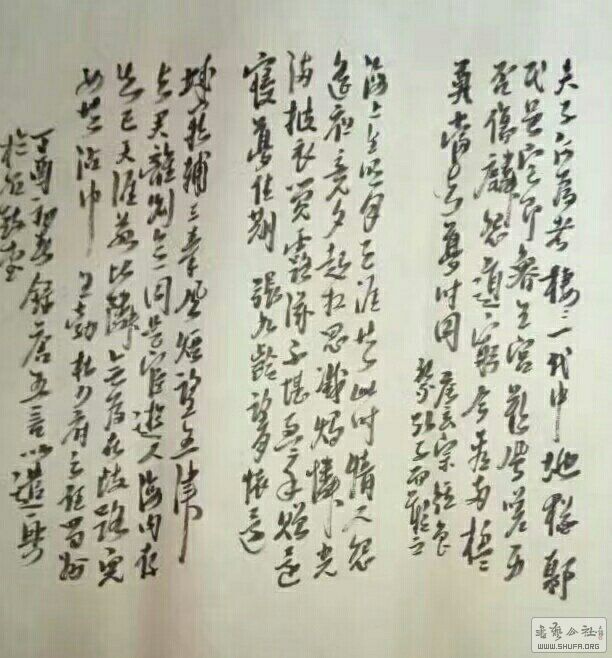 夫子何為者栖々一代中地猶鄹
氏邑宅即魯王宮歎鳳嗟身
否傷麟怨道窮今看兩楹
奠當與夢時同
唐玄宗經魯
祭孔子而歎之
海上生明月天涯共此時情人怨
遙夜竟夕起相思滅燭憐光
滿披衣覺露滋不堪盈手贈還
寢夢佳期 張九齡望月懷遠
城闕輔三秦風煙望五津
與君離別意同是宦遊人海內存
知己天涯若比鄰無為在歧路兒
女共沾巾 王勃杜少府之任蜀州
丁酉初春錄唐五言以遣興
於
書藝公社
WWW.SHUFA.ORG